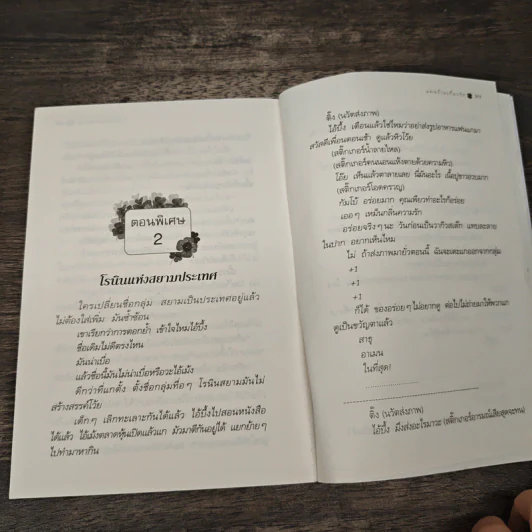 ตอนพิเศษ
2
โรนินแห่งสยามประเทศ
ใครเปลี่ยนชื่อกลุ่ม สยามเป็นประเทศอยู่แล้ว
ไม่ต้องใส่เพิ่ม มันซ้ำซ้อน
เขาเรียกว่าการตอกย้ำ เข้าใจไหมไอ้บึ้ง
ชื่อเดิมไม่ดีตรงไหน
มันน่าเบื่อ
แล้วชื่อนี้มันไม่น่าเบื่อหรือวะไอ้เม้ง
ดีกว่าที่แกตั้ง ตั้งชื่อกลุ่มทื่อๆ โรนินสยามมันไม่
สร้างสรรค์โว้ย
เด็กๆ เลิกทะเลาะกันได้แล้ว ไอ้บึ้งไปสอนหนังสือ
ได้แล้ว ไอ้เม้งตลาดหุ้นเปิดแล้วแก มัวมาตีกันอยู่ได้ แยกย้ายๆ
ไปทำมาหากิน
ติ๊ง (นวัตส่งภาพ)
ไอ้บึ้ง เตือนแล้วใช่ไหมว่าอย่าส่งรูปอาหารแฟนแกมา
สวัสดีเพื่อนตอนเช้า ดูแล้วหิวโว้ย
(สติ๊กเกอร์น้ำลายไหล)
(สติ๊กเกอร์คนนอนแห้งตายด้วยความหิว)
โอ๊ย เห็นแล้วตาลายเลย นี่มันอะไร เนื้อปูขาวอวบมาก
(สติ๊กเกอร์โอดครวญ)
กัมโบ้ อร่อยมาก คุณเพียวทำอะไรก็อร่อย
เออๆ เหม็นกลิ่นความรัก
อร่อยจริงๆ นะ วันก่อนเป็นวากิวสเต๊ก แทบละลาย
ในปาก อยากเห็นไหม
ไม่ ถ้าส่งภาพมายั่วตอนนี้ ฉันจะเตะแกออกจากกลุ่ม
+1
+1
+1
ก็ได้ ของอร่อยๆ ไม่อยากดู ต่อไปไม่ถ่ายมาให้พวกแก
ดูเป็นขวัญตาแล้ว
สาธุ
อาเมน
ในที่สุด!
ติ๊ง (นวัตส่งภาพ)
ไอ้บึ้ง มึงส่งอะไรมาวะ (สติ๊กเกอร์อารมณ์เสียสุดจะทน)